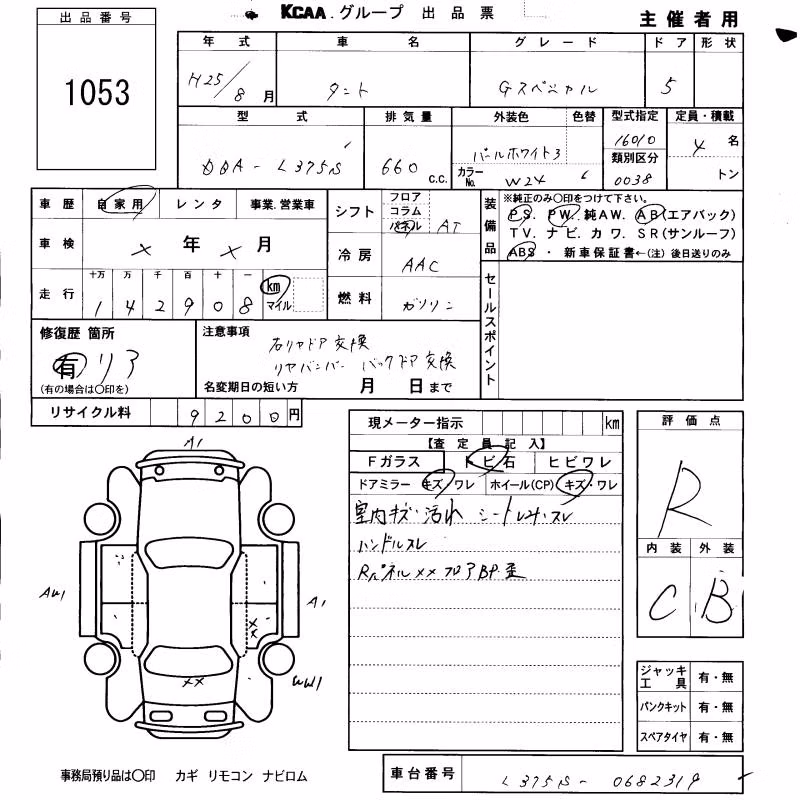 KCAA.グループ 出品票
主催者用
出品番号
1053
年式 車名 グレード ドア 形状
H25/8月 タント Gスペシャル 5
型式 排気量 外装色 色替 型式指定 定員・積載
DBA-L375S 660 C.C. パールホワイト3 16010 4名
カラーNo. W24 類別区分 0038 トン
車歴 自家用 レンタ 事業.営業車
車検 × 年 × 月
走行 十万 万 千 百 十 一
142908 km マイル
シフト フロア コラム パネル AT
冷房 AAC
燃料 ガソリン
装備品 ※純正のみ〇印をつけて下さい。
PS. PW. 純AW. AB(エアバック)
TV. ナビ. カワ. SR(サンルーフ)
ABS ・ 新車保証書←(注)後日送りのみ
セールスポイント
修復歴 箇所
有 リア
(有の場合は〇印を)
注意事項
右リヤドア交換
リヤバンパー バックドア交換
名変期日の短い方 月 日まで
リサイクル料 9200円
現メーター指示 km
【査定員記入】
Fガラス トビ石 ヒビワレ
ドアミラー キズ・ワレ ホイール(CP) キズ・ワレ
室内キズ・汚れ シート
ハンドルスレ
Rパネル×× フロアBP.歪
評価点
R
内装 外装
C B
A1
AW1
A1
××
WW1
××
ジャッキ工具 有・無
パンクキット 有・無
スペアタイヤ 有・無
事務局預り品は〇印 カギ リモコン ナビロム
車台番号 L375S-0682319